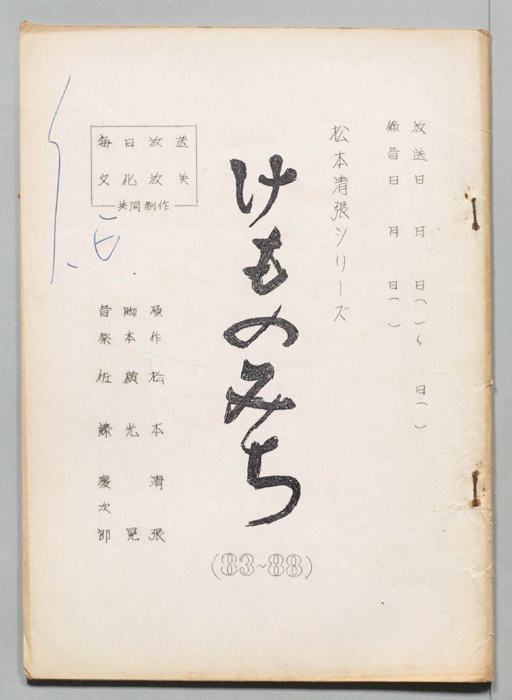 放送日 月 日( )～ 日( )
録音日 月 日( )
松本清張シリーズ
けものみち
(83~88)
毎日放送
文化放送
共同制作
原作 松本清張
脚本 横光晃
音楽 佐藤慶次郎